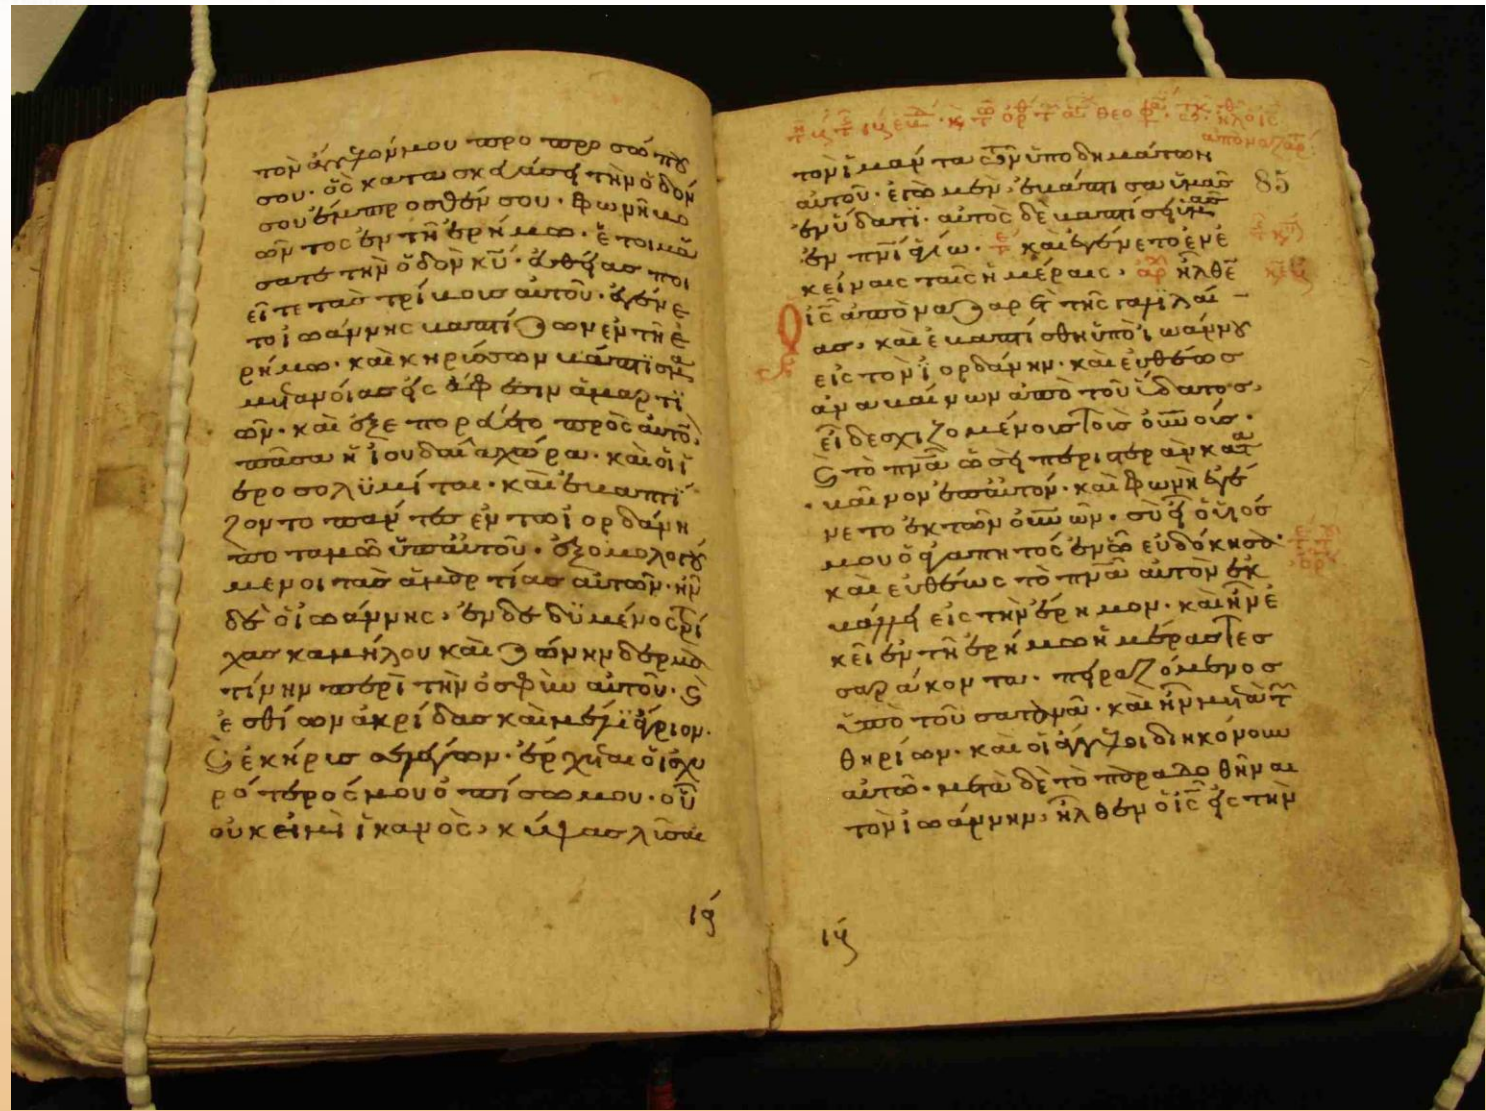 τὸν ἄγγελόν μου πρὸ προσώπου
σου· ὃς κατασκευάσει τὴν ὁδόν
σου ἔμπροσθέν σου· φωνὴ βο
ῶντος ἐν τῇ ἐρήμω· ἑτοιμά
σατε τὴν ὁδὸν κ̅υ̅· εὐθείας ποι
εῖτε τὰς τρίβους αὐτοῦ· ἐγένε
το ἰωάννης βαπτίζων ἐν τῇ ἐ
ρήμω· καὶ κηρύσσων βάπτισμα
μετανοίας εἰς ἄφεσιν ἁμαρτϊ
ῶν· καὶ ἐξεπορεύετο πρὸς αὐτὸν
πᾶσα ἡ ἰουδαία χώρα· καὶ οἱ ἱ
εροσολϋμίται· καὶ ἐβαπτί
ζοντο πάντες ἐν τῶ ἰορδάνη
ποταμῶ ὑπ' αὐτοῦ· ἐξομολογού
μενοι τὰς ἁμαρτίας αὐτῶν· ἦν
δὲ ὁ ἰωάννης, ἐνδεδϋμένος τρί
χας καμήλου καὶ ζώνην δερμα
τίνην περὶ τὴν ὀσφὺν αὐτοῦ· καὶ
ἐσθίων ἀκρίδας καὶ μέλϊ ἄγριον·
καὶ ἐκήρισσε λέγων· ἔρχεται ὁ ἰσχυ
ρότερός μου ὀπίσω μου· οὗ
οὐκ εἰμὶ ἱκανὸς, κύψας λῦσαι
ις
τὸν ἱμάντα τῶν ὑποδημάτων
αὐτοῦ· ἐγὼ μὲν, ἐβάπτισα ὑμᾶς
ἐν ὕδατϊ· αὐτὸς δὲ βαπτίσει ὑμᾶς
ἐν π̅ν̅ι̅ ἁγίω· καὶ ἐγένετο ἐν ἐ
κείναις ταῖς ἡμέραις· ἦλθεν
ι̅ς̅ ἀπὸ ναζαρὲτ τῆς γαλϊλαί
ας, καὶ ἐβαπτίσθη ὑπὸ ἰωάννου
εἰς τὸν ἰορδάνην· καὶ εὐθέως
ἀναβαίνων ἀπὸ τοῦ ὕδατος,
εἶδε σχιζομένους τοὺς ο̅υ̅ν̅ους·
καὶ τὸ π̅ν̅α̅ ὡσεὶ περιστερὰν κατα
βαῖνον ἐπ' αὐτόν· καὶ φωνὴ ἐγέ
νετο ἐκ τῶν ο̅υ̅ν̅ων· σὺ εἶ ὁ υἱός
μου ὁ ἀγαπητός ἐν ὧ εὐδόκησα·
καὶ εὐθέως τὸ π̅ν̅α̅ αὐτὸν ἐκ
βάλλει εἰς τὴν ἔρημον· καὶ ἦν ἐ
κεῖ ἐν τῇ ἐρήμω ἡμέρας τεσ
σαράκοντα· πειραζόμενος
ὑπὸ τοῦ σατανᾶ· καὶ ἦν μετὰ τῶν
θηρίων· καὶ οἱ ἄγγελοι διηκόνουν
αὐτῶ· μετὰ δὲ τὸ παραδοθῆναι
τὸν ἰωάννην, ἦλθεν ὁ ι̅ς̅ εἰς τὴν
85